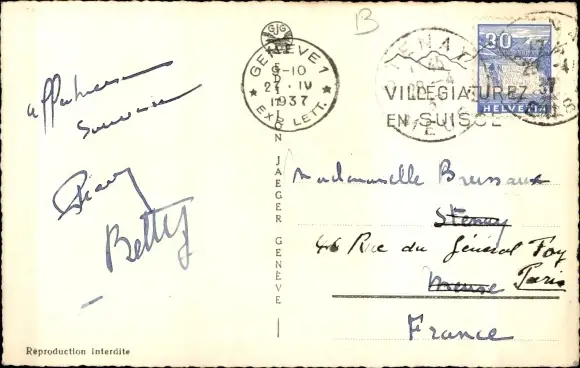 B
GENÈVE 1
9-10
21. IV
1937
EXP. LETT.
STENAY
VILLÉGIATUREZ
EN SUISSE
MEUSE
30
HELVETIA
Affectueux
Souvenir
Betty
JAEGER GENÈVE
Mademoiselle Brussaux
Stenay
46 Rue du Général Foy
Meuse Paris
France
Reproduction interdite